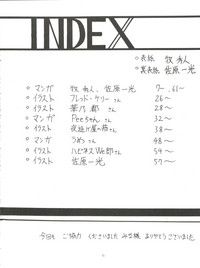 INDEX
○表紙 牧 秀人
○裏表紙 佐原一光
○マンガ 牧 秀人、佐原一光 7～, 61～
○イラスト フレッド・ケリーさん 26～
○イラスト 葉乃 都さん 28～
○マンガ Peeちゃん 32～
○イラスト 夜逃げ屋の苗さん 38～
○マンガ うめうさん 48～
○イラスト ハピネスWe郎さん 54～
○イラスト 佐原一光 57～
今回も ご協力 くださいました みな様、ありがとうございました